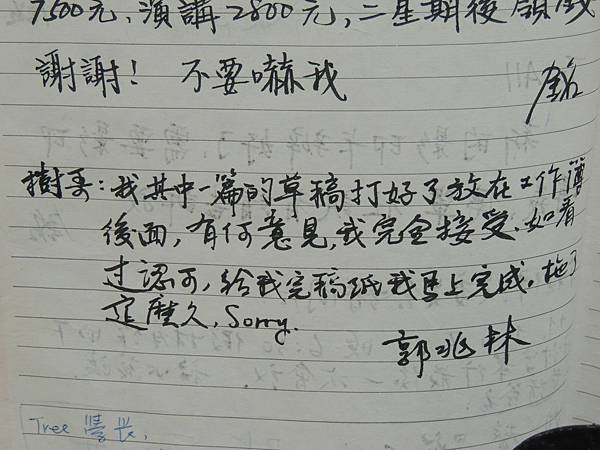 7500元,演講2800元,二星期後領錢
謝謝! 不要嚇我
樹哥:我其中一篇的草稿打好了放在工作簿
後面,有何意見,我完全接受.如看
过認可,給我完稿紙我馬上完成.拖了
這麼久,Sorry.
郭兆林
Tree 學长,